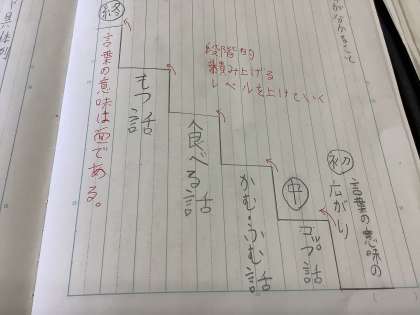 が分かること
初
言葉の意味の
広がり
中
コップ話
かむ・ふむ話
食べる話
もつ話
段階的
積み上げる
レベルを上げていく
終
言葉の意味は面である。
具体例